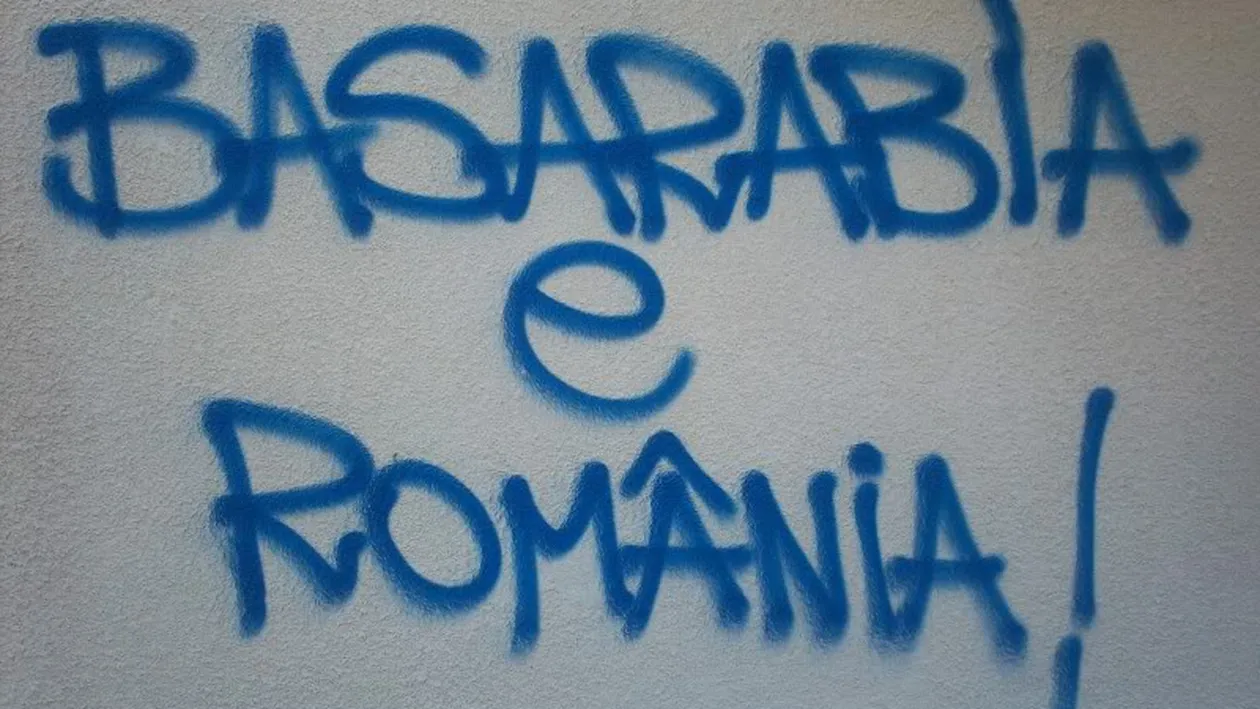 BASARABIA
e
ROMÂNIA!